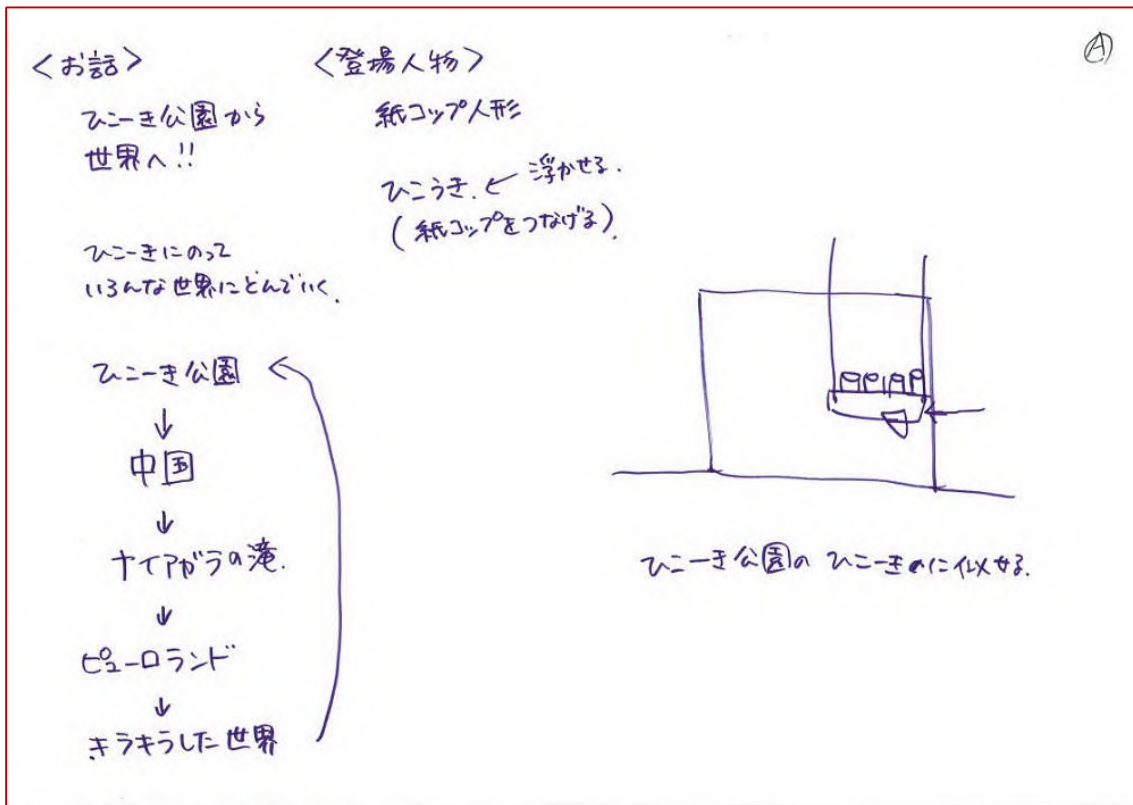 Ⓐ
<お話>
ひこーき公園から
世界へ!!
ひこーきにのって
いろんな世界にとんでいく.
ひこーき公園
↓
中国
↓
ナイアガラの滝.
↓
ピューロランド
↓
キラキラした世界
<登場人物>
紙コップ人形
ひこうき. ← 浮かせる.
(紙コップをつなげる).
ひこーき公園の ひこーきに似せる.